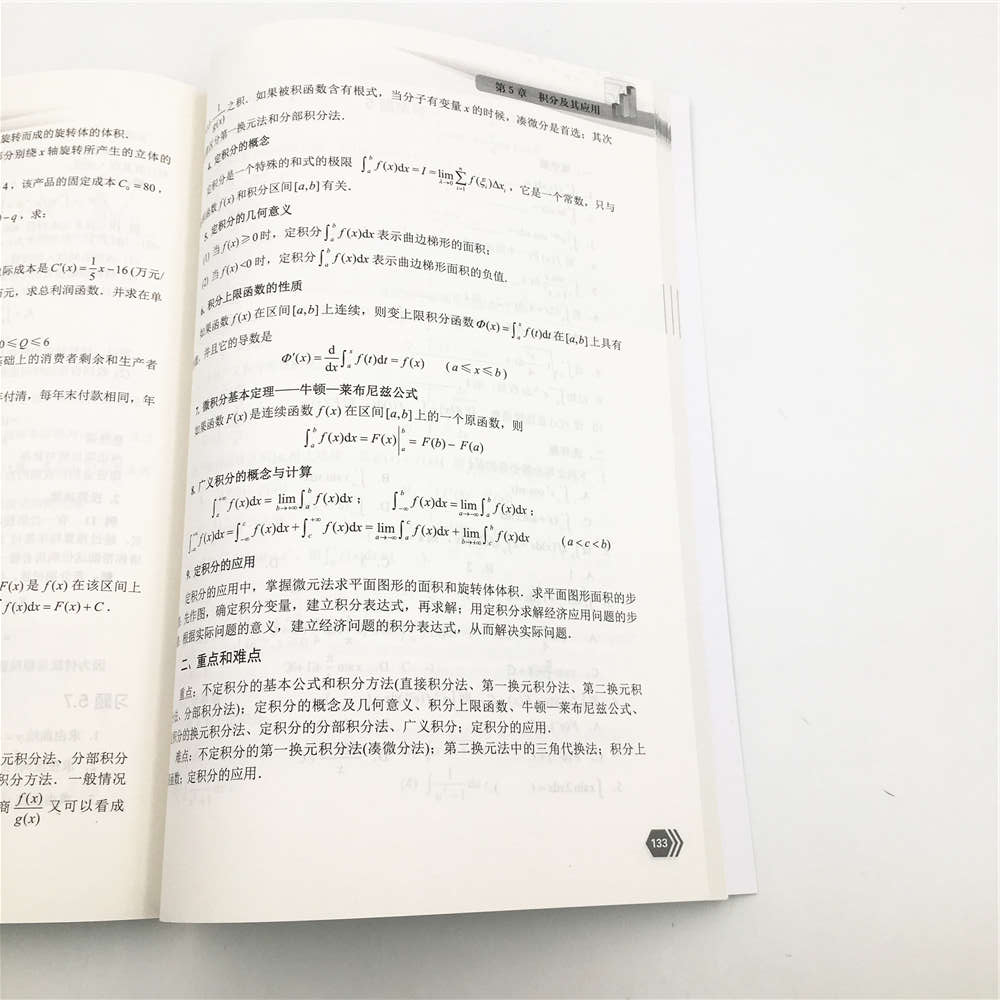 旋转而成的旋转体的体积.
分别绕 x 轴旋转所产生的立体的
4，该产品的固定成本 C₀ = 80，
−q，求：
际成本是 C′(x) = 1/5 x − 16 (万元/
元，求总利润函数．并求在单
0 ≤ Q ≤ 6
基础上的消费者剩余和生产者
付清，每年末付款相同，年
F(x) 是 f(x) 在该区间上
f(x)dx = F(x) + C．
元积分法、分部积分
积分方法．一般情况
商 f(x)/g(x) 又可以看成
第 5 章 积分及其应用
1/g(x) 之积．如果被积函数含有根式，当分子有变量 x 的时候，凑微分是首选；其次
分第一换元法和分部积分法．
4. 定积分的概念
定积分是一个特殊的和式的极限 ∫ₐᵇ f(x)dx = I = lim_{λ→0} ∑_{i=1}^{n} f(ξᵢ)Δxᵢ，它是一个常数，只与
函数 f(x) 和积分区间 [a,b] 有关．
5. 定积分的几何意义
(1) 当 f(x) ≥ 0 时，定积分 ∫ₐᵇ f(x)dx 表示曲边梯形的面积；
(2) 当 f(x) < 0 时，定积分 ∫ₐᵇ f(x)dx 表示曲边梯形面积的负值．
6. 积分上限函数的性质
如果函数 f(x) 在区间 [a,b] 上连续，则变上限积分函数 Φ(x) = ∫ₐˣ f(t)dt 在 [a,b] 上具有
并且它的导数是
Φ′(x) = d/dx ∫ₐˣ f(t)dt = f(x) (a ≤ x ≤ b)
7. 微积分基本定理——牛顿—莱布尼兹公式
如果函数 F(x) 是连续函数 f(x) 在区间 [a,b] 上的一个原函数，则
∫ₐᵇ f(x)dx = F(x)|ₐᵇ = F(b) − F(a)
8. 广义积分的概念与计算
∫ₐ^{+∞} f(x)dx = lim_{b→+∞} ∫ₐᵇ f(x)dx； ∫_{−∞}^{b} f(x)dx = lim_{a→−∞} ∫ₐᵇ f(x)dx；
∫_{−∞}^{+∞} f(x)dx = ∫_{−∞}^{c} f(x)dx + ∫_{c}^{+∞} f(x)dx = lim_{a→−∞} ∫ₐ^{c} f(x)dx + lim_{b→+∞} ∫_{c}^{b} f(x)dx (a < c < b)
9. 定积分的应用
定积分的应用中，掌握微元法求平面图形的面积和旋转体体积．求平面图形面积的步
先作图，确定积分变量，建立积分表达式，再求解；用定积分求解经济应用问题的步
根据实际问题的意义，建立经济问题的积分表达式，从而解决实际问题．
二、重点和难点
重点：不定积分的基本公式和积分方法(直接积分法、第一换元积分法、第二换元积
法、分部积分法)；定积分的概念及几何意义、积分上限函数、牛顿—莱布尼兹公式、
积分的换元积分法、定积分的分部积分法、广义积分；定积分的应用．
难点：不定积分的第一换元积分法(凑微分法)；第二换元法中的三角代换法；积分上
函数；定积分的应用．
133